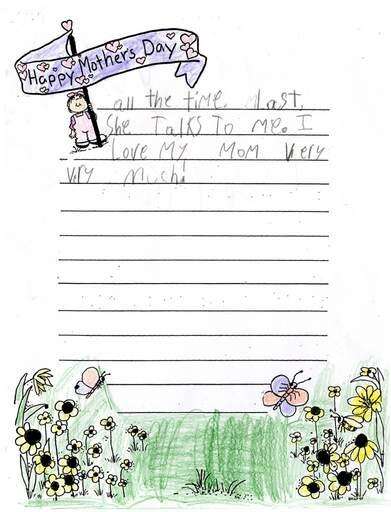 Happy Mothers Day
all the time. Last,
She Talks To me. I
Love My Mom Very
very Much!